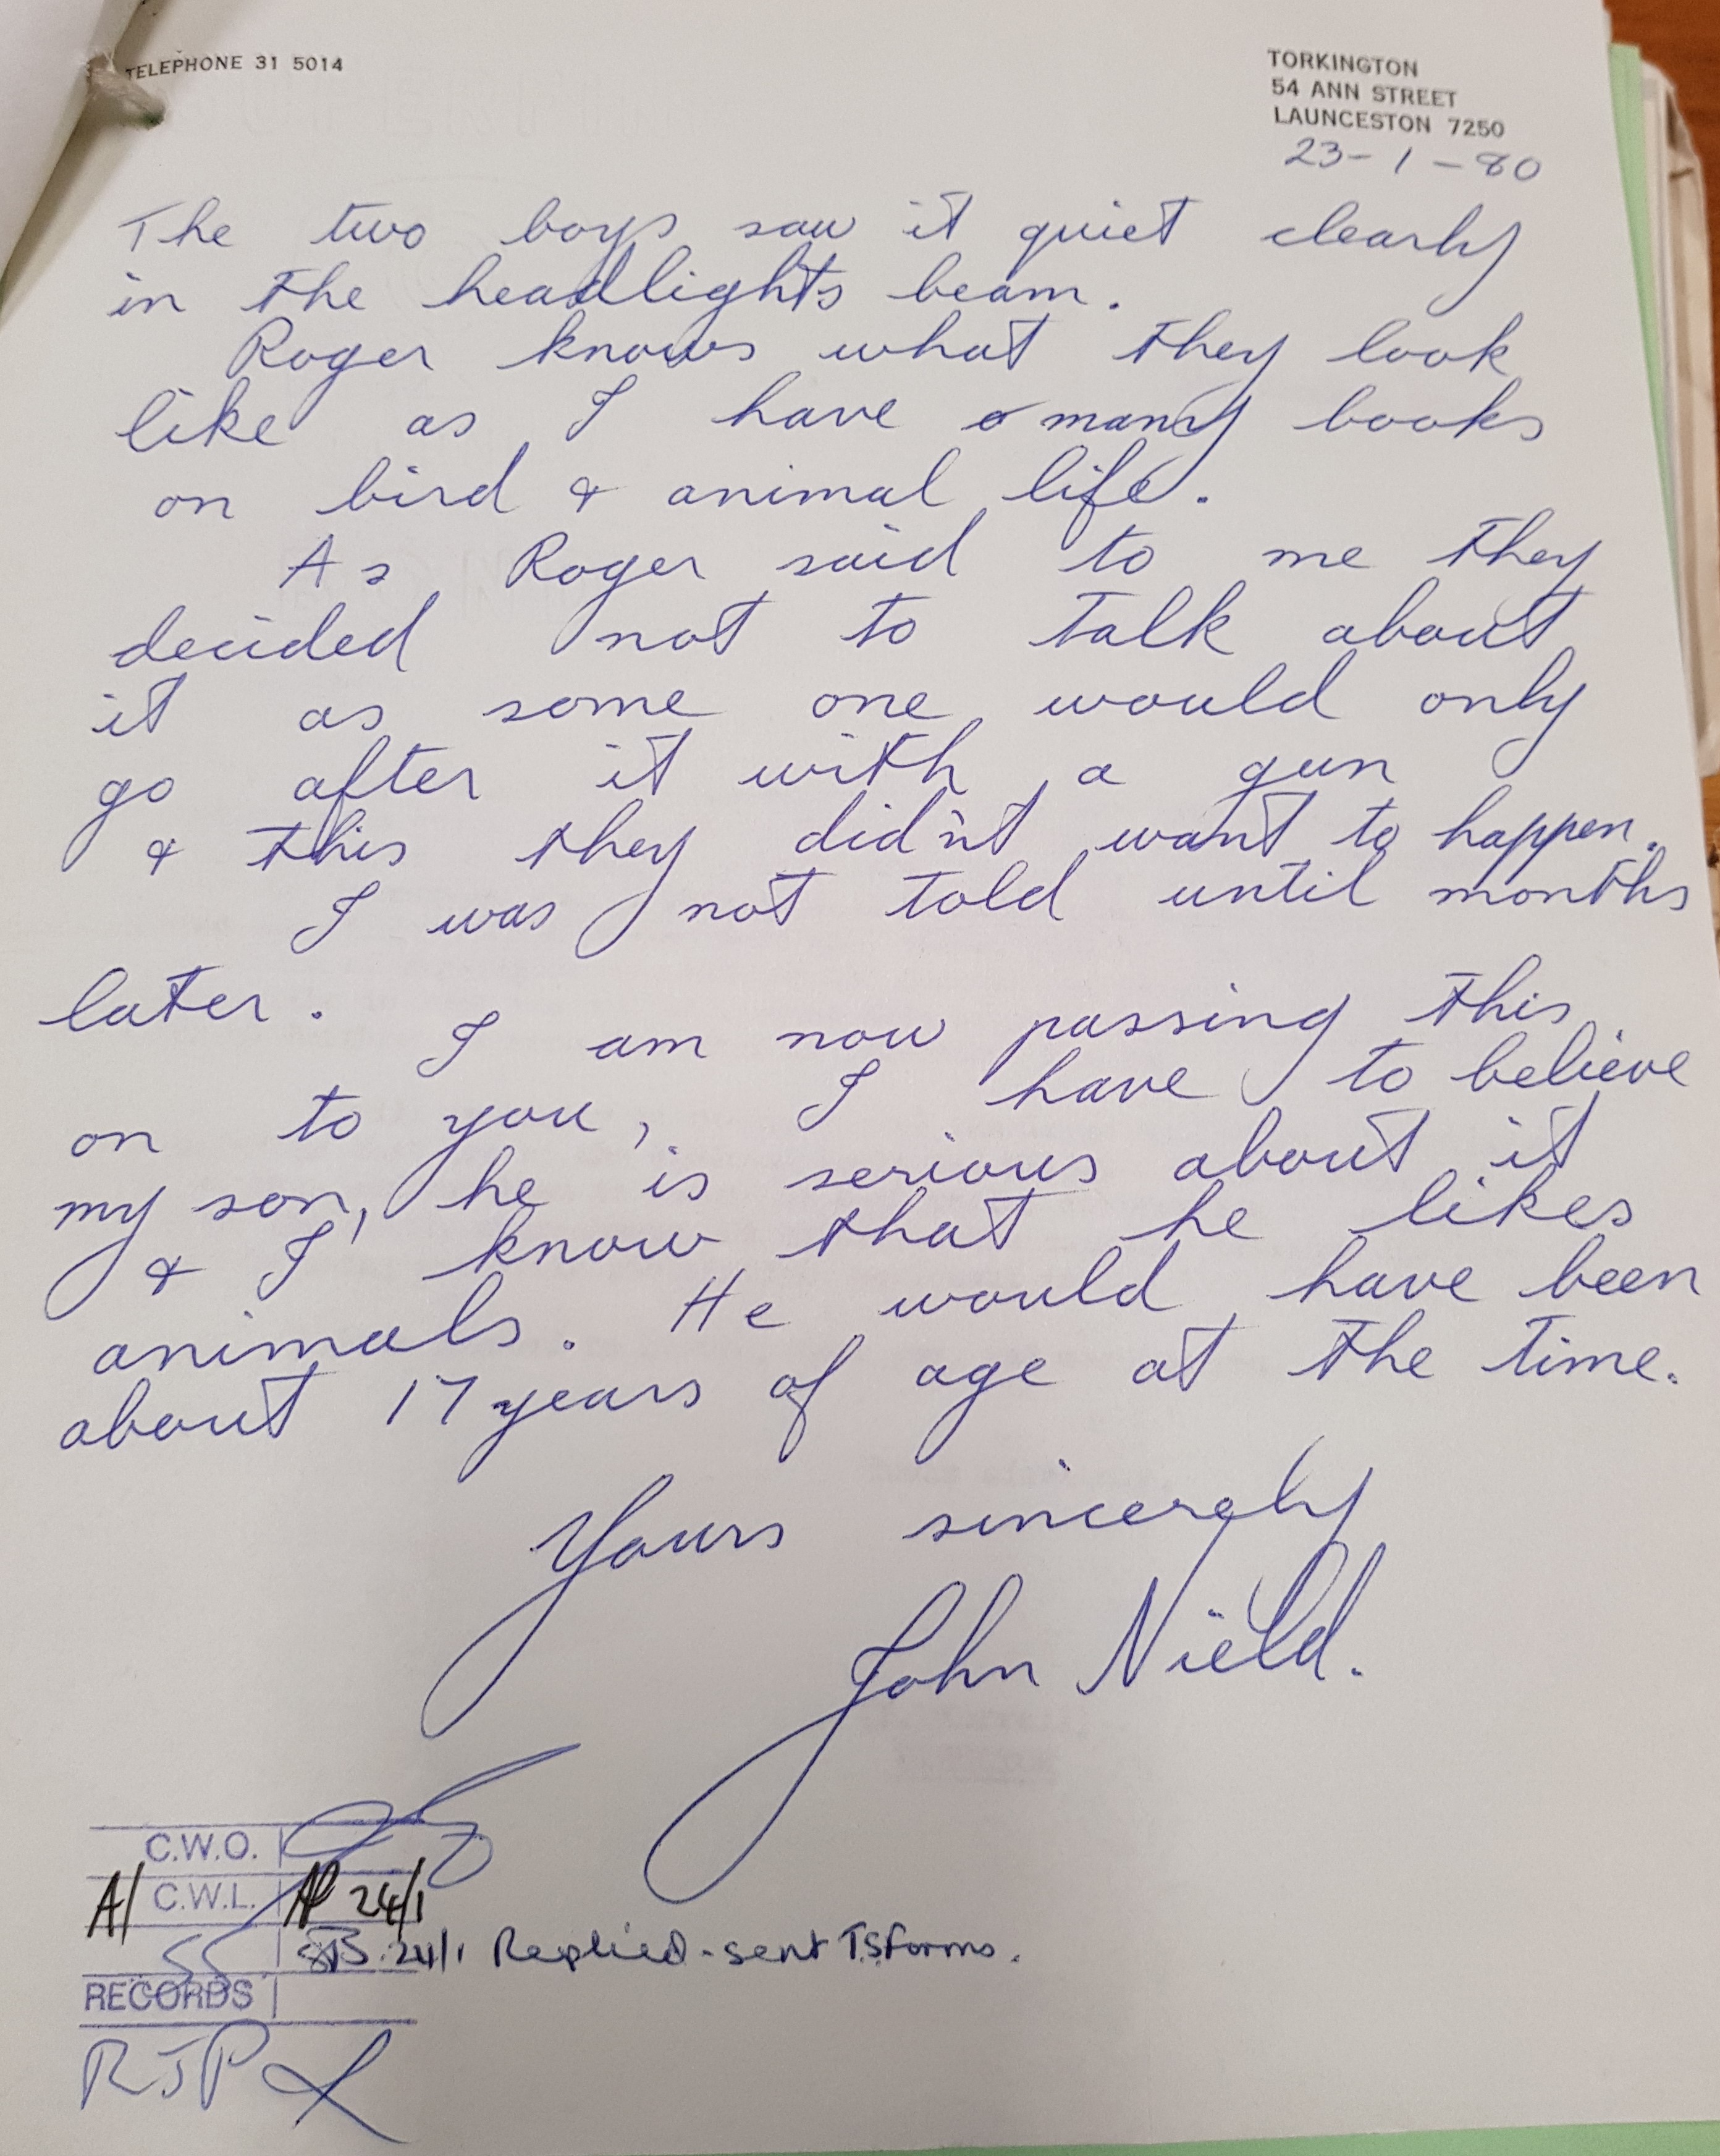 TELEPHONE 31 5014
TORKINGTON
54 ANN STREET
LAUNCESTON 7250
23-1-80
The two boys saw it quiet clearly
in the headlights beam.
Roger knows what they look
like as I have many books
on bird & animal life.
As Roger said to me they
decided not to talk about
it as some one would only
go after it with a gun
& this they didn't want to happen.
I was not told until months
later.
I am now passing this
on to you, I have to believe
my son, he is serious about it
& I know that he likes
animals. He would have been
about 17 years of age at the time.
Yours sincerely
John Nield.
C.W.O.
A/ C.W.L. 24/1
24/1 Replied - sent T.S forms.
RECORDS
RJP